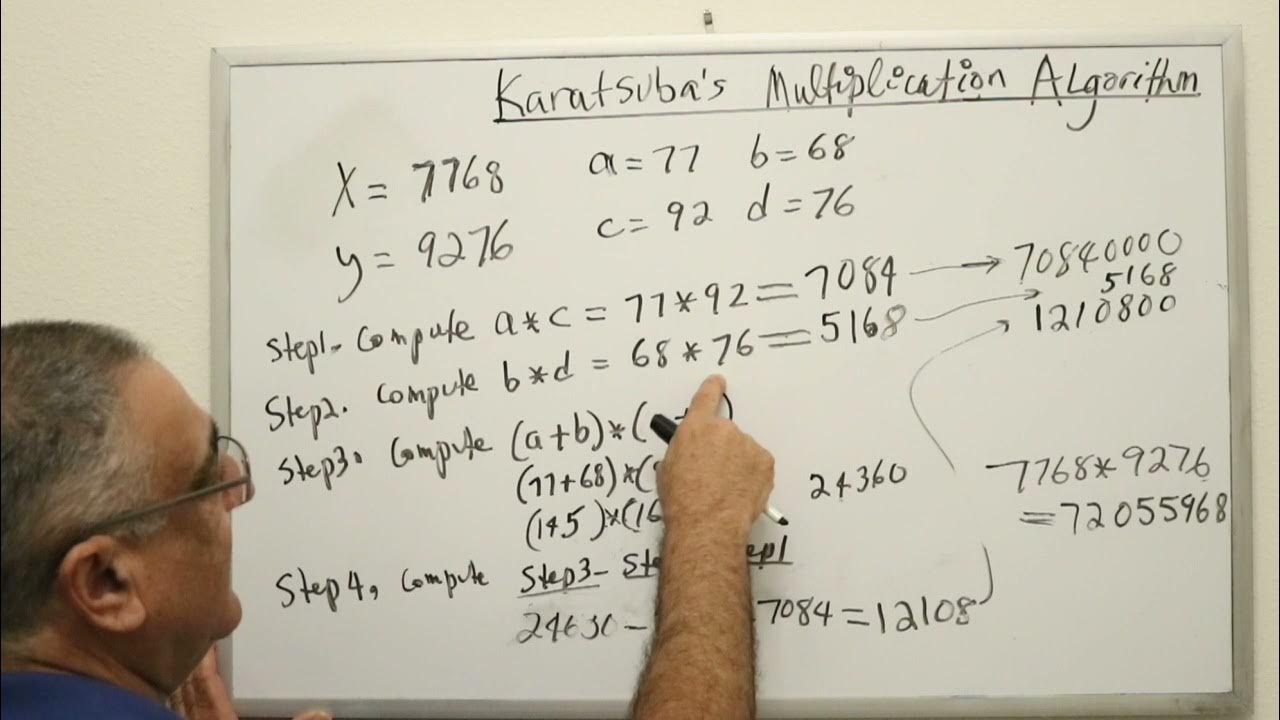 Karatsuba's Multiplication Algorithm
X = 7768 a = 77 b = 68
y = 9276 c = 92 d = 76
Step1- Compute a*c = 77*92 = 7084 → 70840000
Step2. Compute b*d = 68*76 = 5168 → 5168
1210800
Step3. Compute (a+b)*(
(77+68)*( 24360
(145)*(16
7768*9276
= 72055968
Step4, Compute Step3- Step1
7084 = 12108